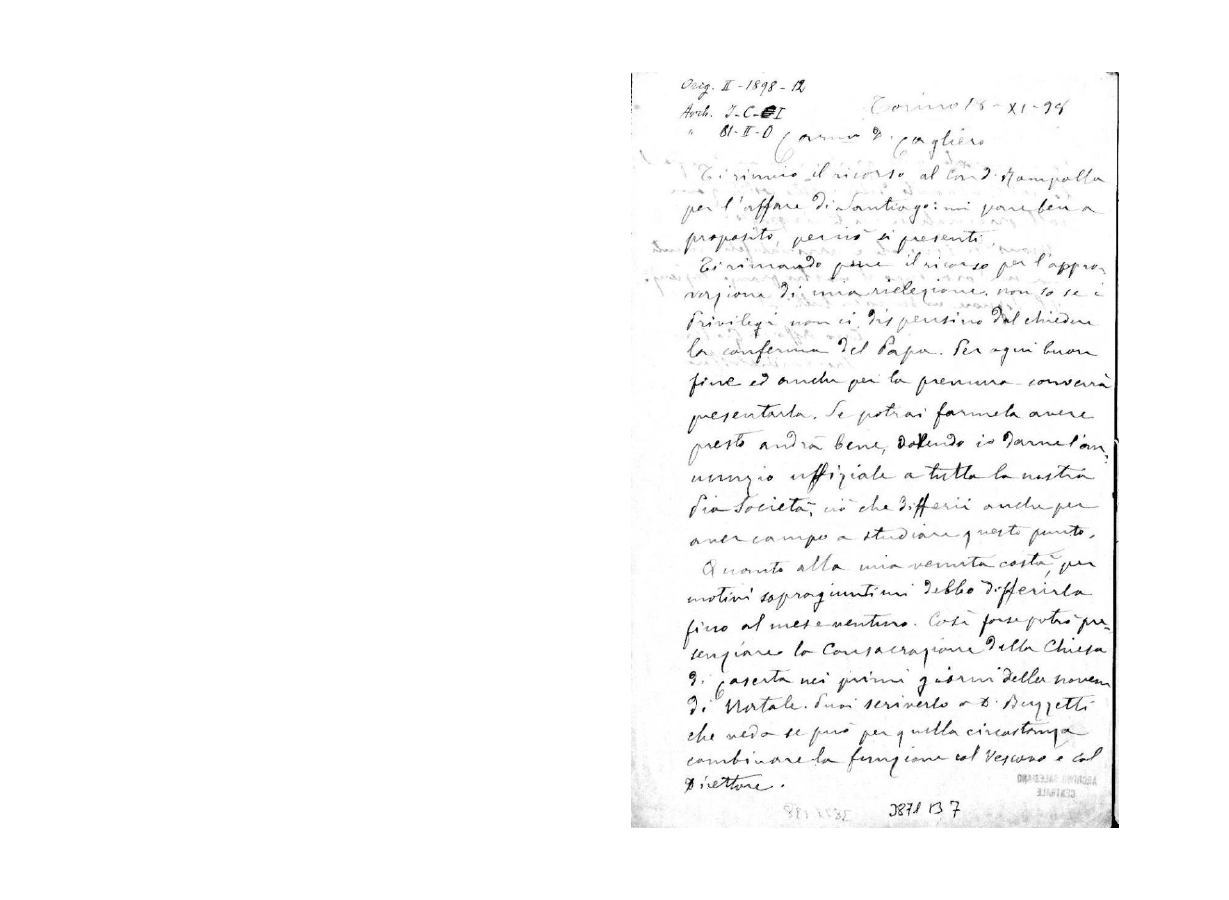 Orig. II - 1898 - 12
Torino 18 - XI - 98
Arch. J-C-I
" 81-II-O
Carmo D. Cagliero
Ti rinvio il ricorso al Card. Rampolla
per l'affare di Santiago: mi pare ben a
proposito, perciò si presenti.
Ti rimando pure il ricorso per l'appro-
vazione di una rielezione. non so se i
Privilegi non ci dispensino dal chiedere
la conferma del Papa. Per ogni buon
fine ed anche per la premura converrà
presentarla. Se potrai farmela avere
presto andrà bene, dovendo io darne l'an-
nunzio uffiziale a tutta la nostra
Pia Società, ciò che differii anche per
aver campo a studiare questo punto.
Quanto alla mia venuta costà, per
motivi sopragiuntimi debbo differirla
fino al mese venturo. Così forse potrò pre-
senziare la Consacrazione della Chiesa
di Caserta nei primi giorni della novena
di Natale. Puoi scriverlo a D. Buzzetti
che veda se può per quella circostanza
combinare la funzione col Vescovo e col
Direttore.
ARCHIVIO SALESIANO
CENTRALE
3871 B 7